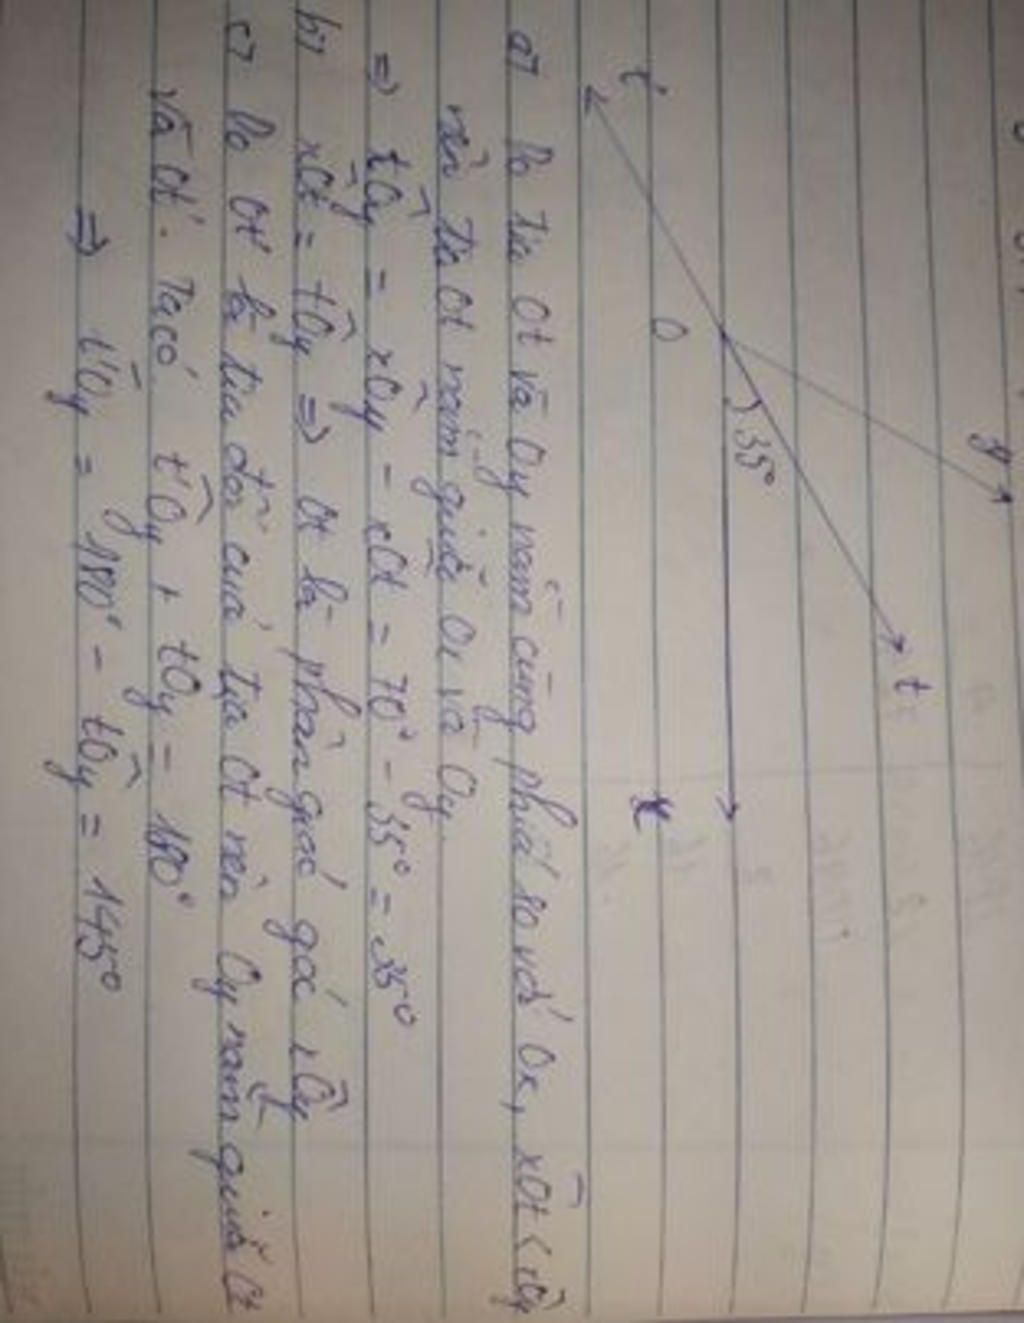 y
t
35°
O
x
t'
a) Do tia Ot và Oy nằm cùng phía so với Ox, xOt < xOy
nên tia Ot nằm giữa Ox và Oy.
⇒ tOy = xOy - xOt = 70° - 35° = 35°
b) xOt = tOy ⇒ Ot là phân giác góc xOy
c) Do Ot' là tia đối của tia Ot nên Oy nằm giữa Ot
và Ot'. Ta có t'Oy + tOy = 180°
⇒ t'Oy = 180° - tOy = 145°